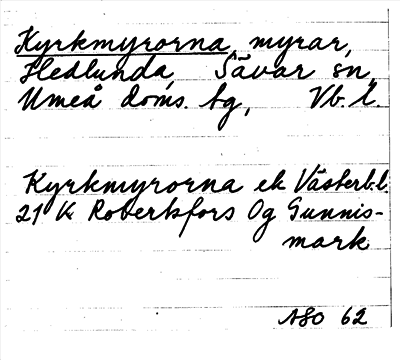 Kyrkmyrorna, myrar,
Hedlunda, Sävar sn,
Umeå doms. tg, Vb. l.
Kyrkmyrorna ek Västerb.l
21 K Robertsfors Og Gunnis-
mark
ASO 62